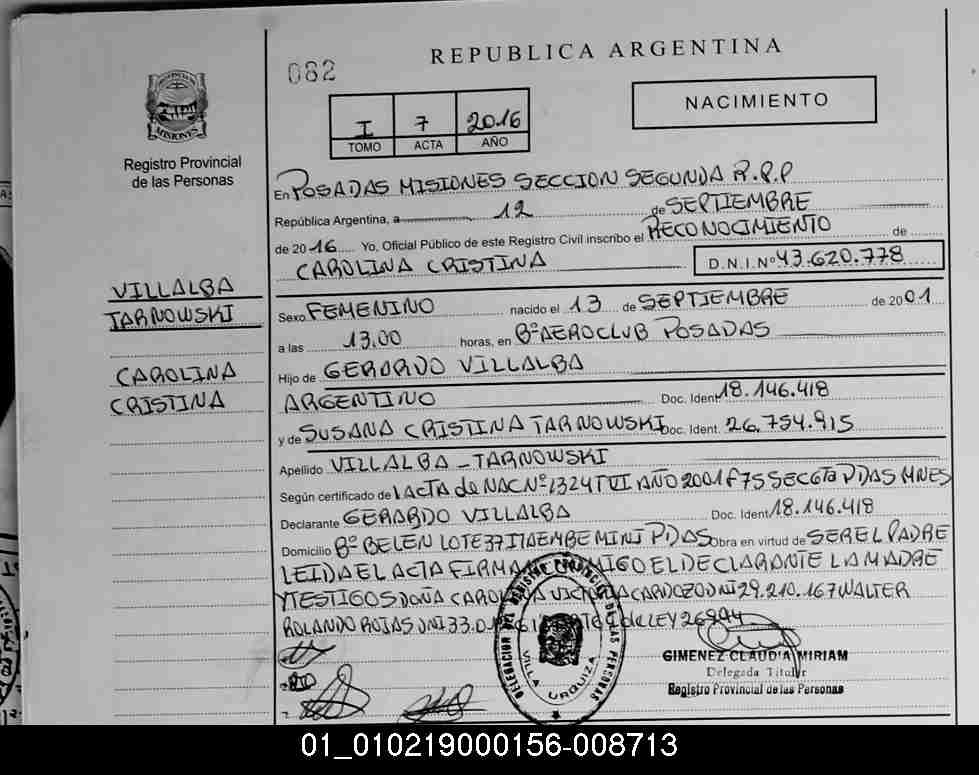 082
REPUBLICA ARGENTINA
PROVINCIA DE MISIONES
Registro Provincial
de las Personas
I 7 2016
TOMO ACTA AÑO
NACIMIENTO
En POSADAS MISIONES SECCION SEGUNDA R.P.P
República Argentina, a 12 de SEPTIEMBRE
de 2016 Yo, Oficial Público de este Registro Civil inscribo el RECONOCIMIENTO de
CAROLINA CRISTINA D.N.I.Nº 43.620.778
VILLALBA
TARNOWSKI
CAROLINA
CRISTINA
Sexo FEMENINO nacido el 13 de SEPTIEMBRE de 2001
a las 13.00 horas, en Bº AEROCLUB POSADAS
Hijo de GERARDO VILLALBA
ARGENTINO Doc. Ident 18.146.418
y de SUSANA CRISTINA TARNOWSKI Doc. Ident. 26.754.915
Apellido VILLALBA - TARNOWSKI
Según certificado de 1 ACTA de NAC Nº 1324 T VI AÑO 2001 F 75 SEC 6ta PDAS MNES
Declarante GERARDO VILLALBA Doc. Ident 18.146.418
Domicilio Bº BELEN LOTE 37 ITAEMBE MINI PDAS Obra en virtud de SER EL PADRE
LEIDA EL ACTA FIRMA EL DECLARANTE LA MADRE
Y TESTIGOS DOÑA CAROLINA VICTORIA CARDOZO DNI 29.210.167 WALTER
ROLANDO ROJAS DNI 33.0 de LEY 26994
DELEGACION DEL REGISTRO PROVINCIAL DE LAS PERSONAS
VILLA URQUIZA
GIMENEZ CLAUDIA MIRIAM
Delegada Titular
Registro Provincial de las Personas
01_010219000156-008713